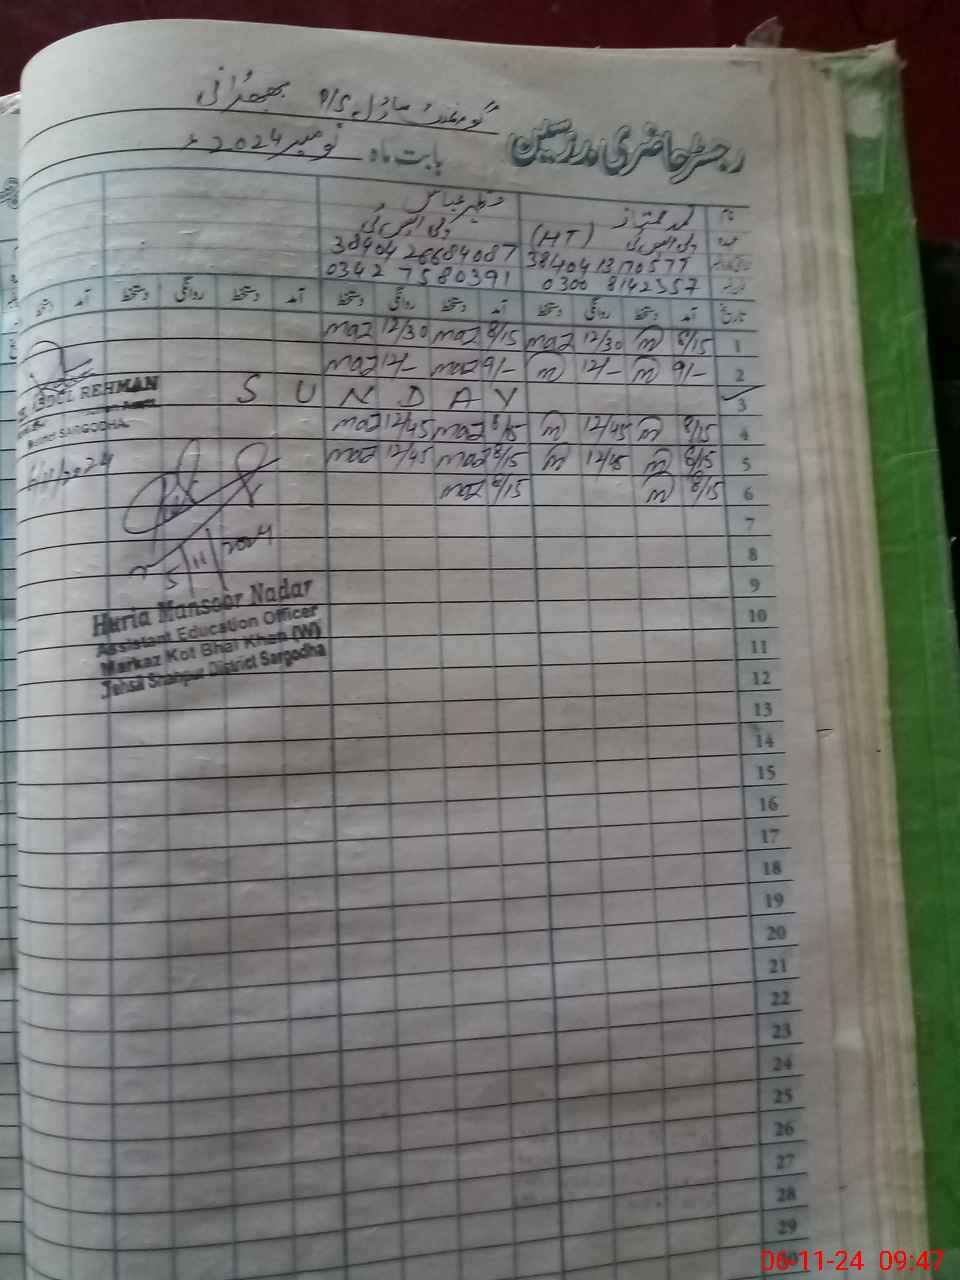 گورنمنٹ ماڈل P/S بھچرانی
رجسٹر حاضری مدرسین بابت ماہ نومبر 2024ء
نام محمد ممتاز مظہر عباس
(HT) پی ایس ٹی پی ایس ٹی
38404 13170577 38404 26684087
0300 8142357 0342 7580391
تاریخ آمد دستخط روانگی دستخط آمد دستخط روانگی دستخط آمد دستخط روانگی دستخط آمد دستخط
1 8/15 m 12/30 maz 8/15 maz 12/30 maz
2 9/- m 12/- m 9/- maz 12/- maz
3 SUNDAY
4 8/15 m 12/45 m 8/15 maz 12/45 maz
5 8/15 m 12/45 m 8/15 maz 12/45 maz
6 8/15 m 8/15 maz
7
8
9
10
11
12
13
14
15
16
17
18
19
20
21
22
23
24
25
26
27
28
29
30
ABDUL REHMAN
SARGODHA
6/11/2024
5/11/2024
Huria Mansoor Nadar
Assistant Education Officer
Markaz Kot Bhai Khan (W)
Tehsil Shahpur District Sargodha
06-11-24 09:47